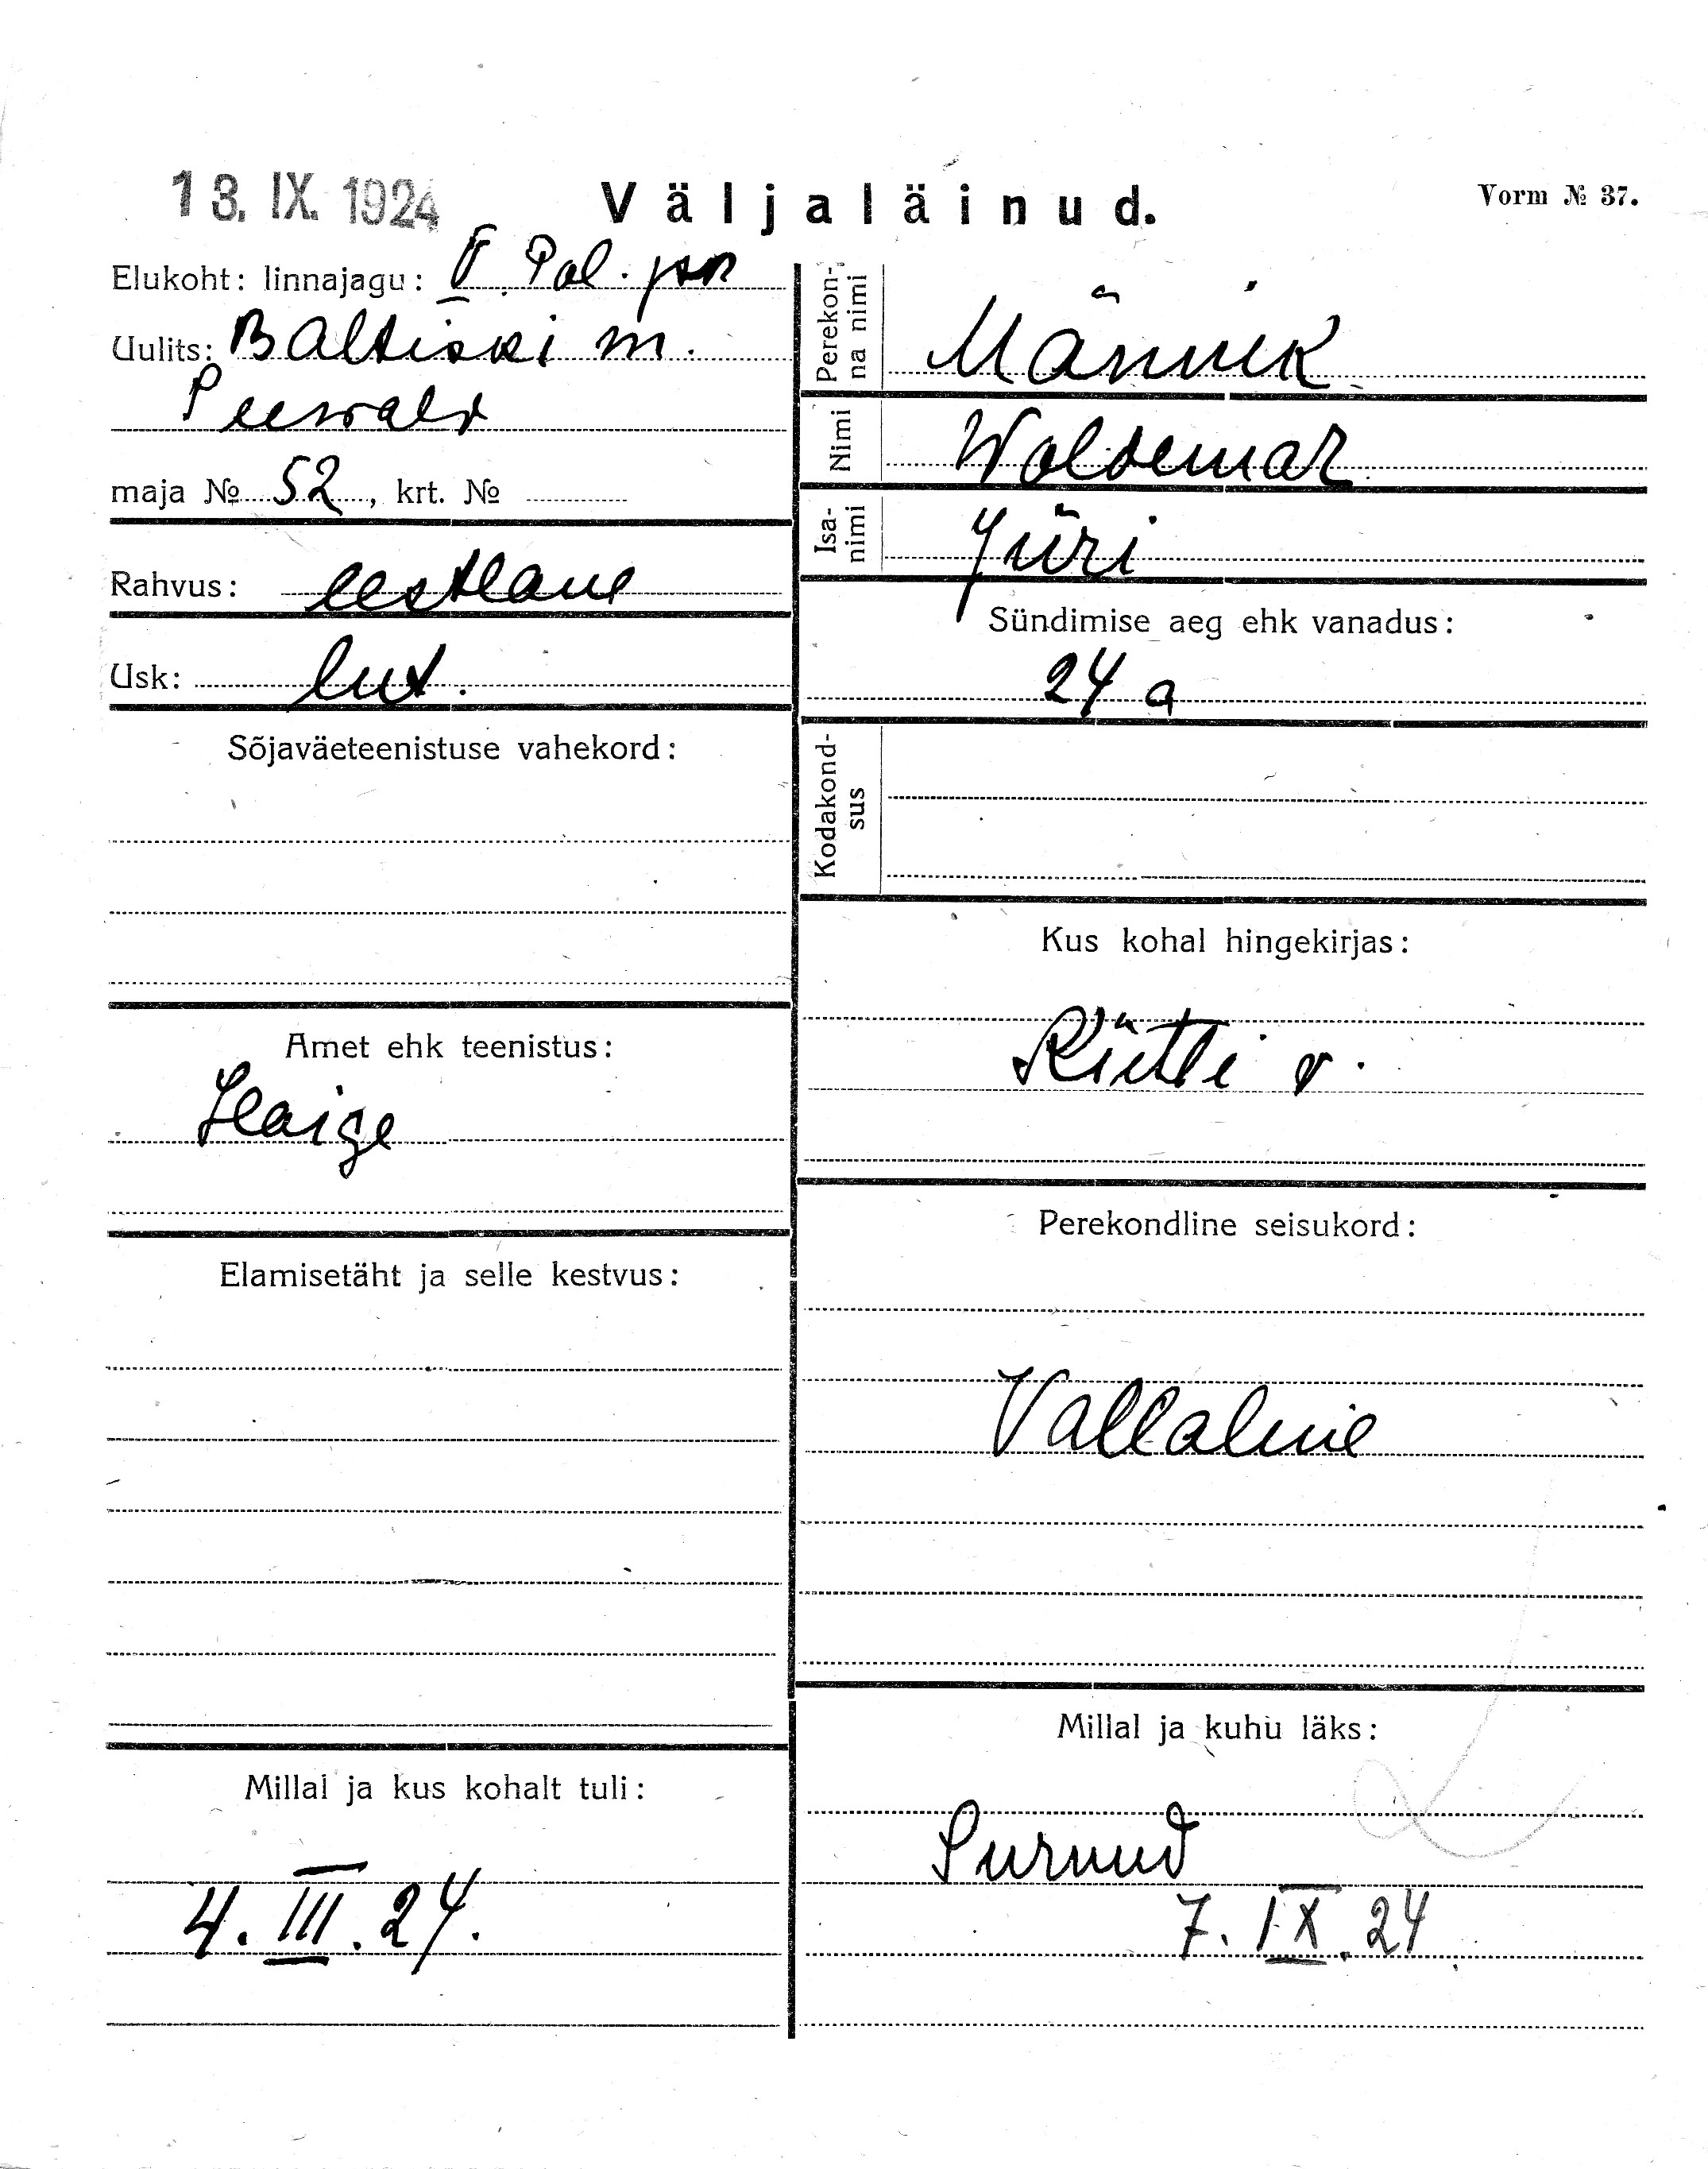 13. IX. 1924
Väljaläinud.
Vorm № 37.
Elukoht: linnajagu: V. Pol. jsk
Uulits: Baltiski m.
Seewald
maja № 52, krt. №
Rahvus: eestlane
Usk: lut.
Sõjaväeteenistuse vahekord:
Amet ehk teenistus:
Haige
Elamisetäht ja selle kestvus:
Millal ja kus kohalt tuli:
4. III. 24.
Perekonna nimi Männik
Nimi Woldemar
Isanimi Jüri
Sündimise aeg ehk vanadus:
24 a
Kodakondsus
Kus kohal hingekirjas:
Rütli v.
Perekondline seisukord:
Vallaline
Millal ja kuhu läks:
Surnud
7. IX. 24